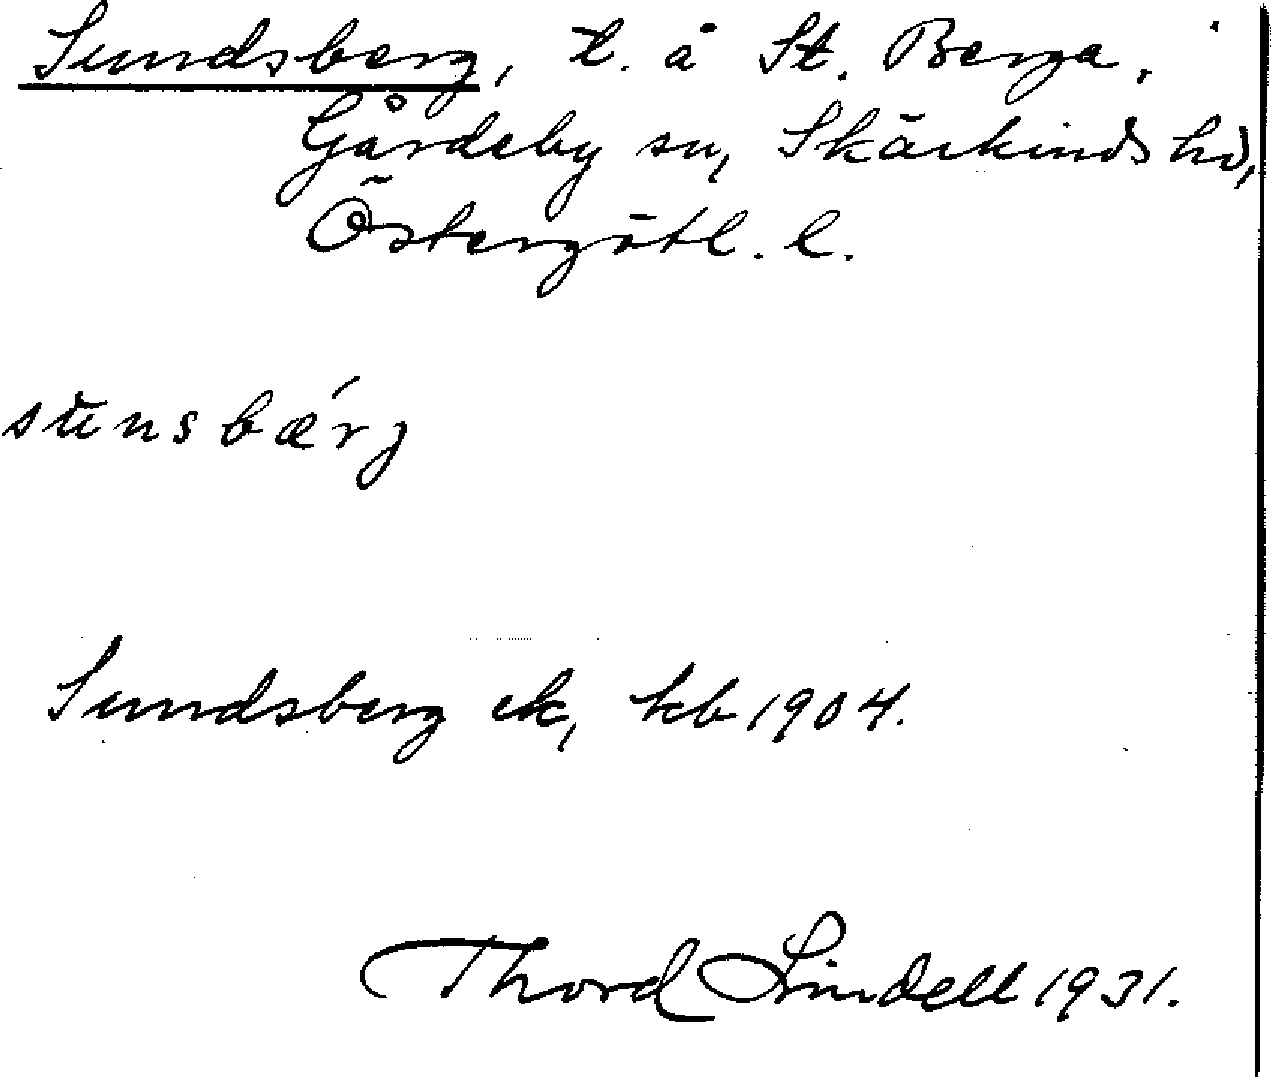 Sundsberg, t. å St. Berga,
Gårdeby sn, Skärkinds hd,
Östergötl. l.
sŭnsbǽrj
Sundsberg ek, kb 1904.
Thord Lindell 1931.